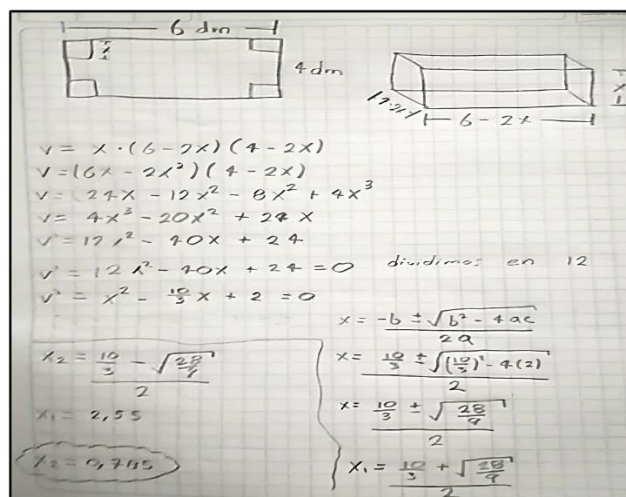 6 dm
x
4 dm
x
4-2x
6 - 2x
V = x · (6 - 2x) (4 - 2x)
V = (6x - 2x²) (4 - 2x)
V = 24x - 12x² - 8x² + 4x³
V = 4x³ - 20x² + 24x
V' = 12x² - 40x + 24
V' = 12x² - 40x + 24 = 0 dividimos en 12
V' = x² - 10/3 x + 2 = 0
x = (-b ± √(b² - 4ac)) / 2a
x = (10/3 ± √((10/3)² - 4(2))) / 2
x = (10/3 ± √(28/9)) / 2
x₁ = (10/3 + √(28/9)) / 2
x₂ = (10/3 - √(28/9)) / 2
x₁ = 2,55
x₂ = 0,785